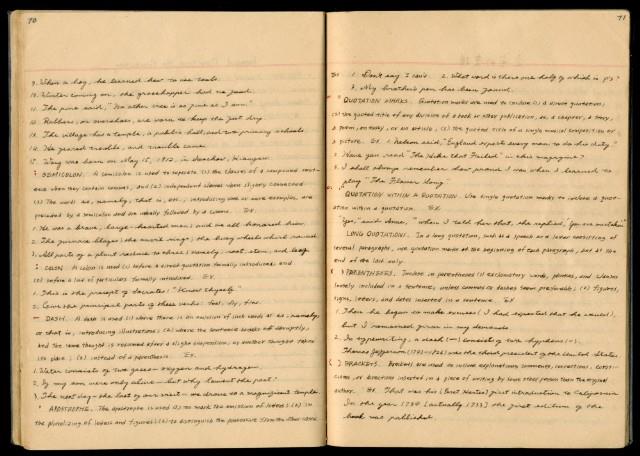 70
9. When a boy, he learned how to use tools.
10. Winter coming on, the grasshopper had no food.
11. The pine said, "No other tree is as fine as I am."
12. Rubbers, or overshoes, are worn to keep the feet dry.
13. The village had a temple, a public hall, and two primary schools.
14. He feared trouble, and trouble came.
15. Wang was born on May 15, 1912, in Kiangsu.
; SEMICOLON. A semicolon is used to separate (1) the clauses of a compound sent-
ence when they contain commas, and (2) independent clauses when slightly connected
(3) The words as, namely, that is, etc., introducing one or more examples, are
preceded by a semicolon and are usually followed by a comma. Ex.
1. He was a brave, large-hearted man; and we all honored him.
2. The furnace blazes; the anvil rings; the busy wheels whirl round.
3. All parts of a plant reduce to three; namely, root, stem, and leaf.
: COLON. A colon is used (1) before a direct quotation formally introduced and
(2) before a list of particulars formally introduced. Ex.
1. This is the precept of Socrates: "Know thyself"
2. Give the principal parts of these verbs: feel, fly,
— DASH. A dash is used (1) where there is an omission of such words as as, namely,
or that is, introducing illustrations; (2) where the sentence breaks off abruptly,
and the same thought is resumed after a slight suspension, or another thought takes
its place; (3) instead of a parenthesis. Ex.
1. Water consists of two gases—oxygen and hydrogen.
2. If my son were only alive—but why lament the past?
3. The next day—the last of our visit—we drove to a magnificent temple.
' APOSTROPHE. The apostrophe is used (1) to mark the omission of letters; (2) in
the pluralizing of letters and figures; (3) to distinguish the possessive from the other cases
71
Ex 1. Don't say I can't. 2. What word is there one half of which is p's?
3. My brother's pen has been found.
" QUOTATION MARKS. Quotation marks are used to inclose (1) a direct quotation;
(2) the quoted title of any division of a book or other publication, as, a chapter, a story, a
poem, an essay, or an article; (3) the quoted title of a single musical composition or
picture. Ex. 1. Nelson said, "England expects every man to do his duty."
2. Have you read "The Hike that Failed" in this magazine?
3. I shall always remember how proud I was when I learned to
play "The Flower Song"
QUOTATION WITHIN A QUOTATION. Use single quotation marks to inclose a quot-
ation within a quotation. Ex.
"Yes," said Anne, "when I told him that, he replied, 'You are mistaken.'"
LONG QUOTATIONS. In a long quotation, such as a speech or a letter consisting of
several paragraphs, use quotation marks at the beginning of each paragraph, but at the
end of the last only.
( ) PARENTHESES. Inclose in parentheses (1) explanatory words, phrases, and clauses
loosely included in a sentence, unless commas or dashes seem preferable; (2) figures,
signs, letters, and dates inserted in a sentence. Ex
1. Then he began to make excuses (I had expected that he would),
but I remained firm in my demands
2. In typewriting, a dash (—) consists of two hyphens (--).
Thomas Jefferson (1743-1826) was the third president of the United States.
[ ] BRACKETS. Brackets are used to inclose explanatory comments, corrections, criti-
cisms, or directions inserted in a piece of writing by some other person than the original
author. Ex. That was his [Bret Harte's] first introduction to California
In the year 1734 [actually 1733] the first edition of the
book was published.